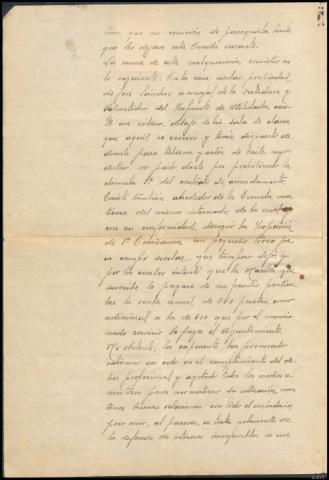 tino, que no cesarían de perseguirla hasta
que les dejara esta Escuela vacante.
La causa de esta malquerencia consistió en
lo siguiente: En la casa escolar, propiedad
de José Sánchez concejal de la Dictadura y
Repartidor del Impuesto de Utilidades, exis-
te un sótano, debajo de la sala de clases
que aquél se reservó y tenía dispuesto de-
dicarlo para taberna y salón de baile, cuyo
destino no pudo darle por prohibírselo la
cláusula 1ª del contrato de arrendamiento.
Existe también alrededor de la Escuela una
tierra del mismo interesado de la cual
era en conformidad, designó la Inspección
de 1ª Enseñanza un pequeño trozo pa-
ra campo escolar, que tampoco dejó y
por los cuales intentó que la Maestra que
suscribe le pagase de su peculio particu-
lar la renta anual de 250 pesetas, como
adicional a la de 500 que por el mencio-
nado servicio le paga el Ayuntamiento.
No obstante, la exponente ha procurado
extremar su celo en el cumplimiento del de-
ber profesional y agotado todos los medios a
su alcance para normalizar su situación, man-
tener buenas relaciones con todo el vecindario,
pero como, al parecer, se trata solamente de
la defensa de intereses inconfesables, es nece